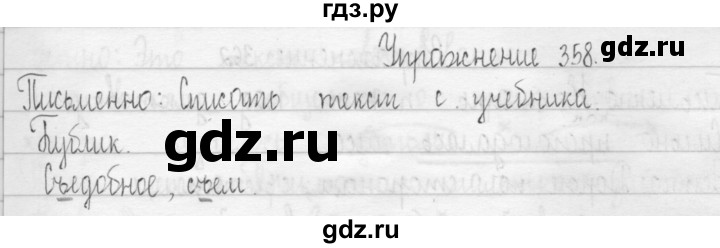 гдз.ру
Упражнение 358.
gdz.ru
Письменно: Списать текст с учебника.
Бублик.
gdz.ru
Съедобное, съем.
gdz.ru